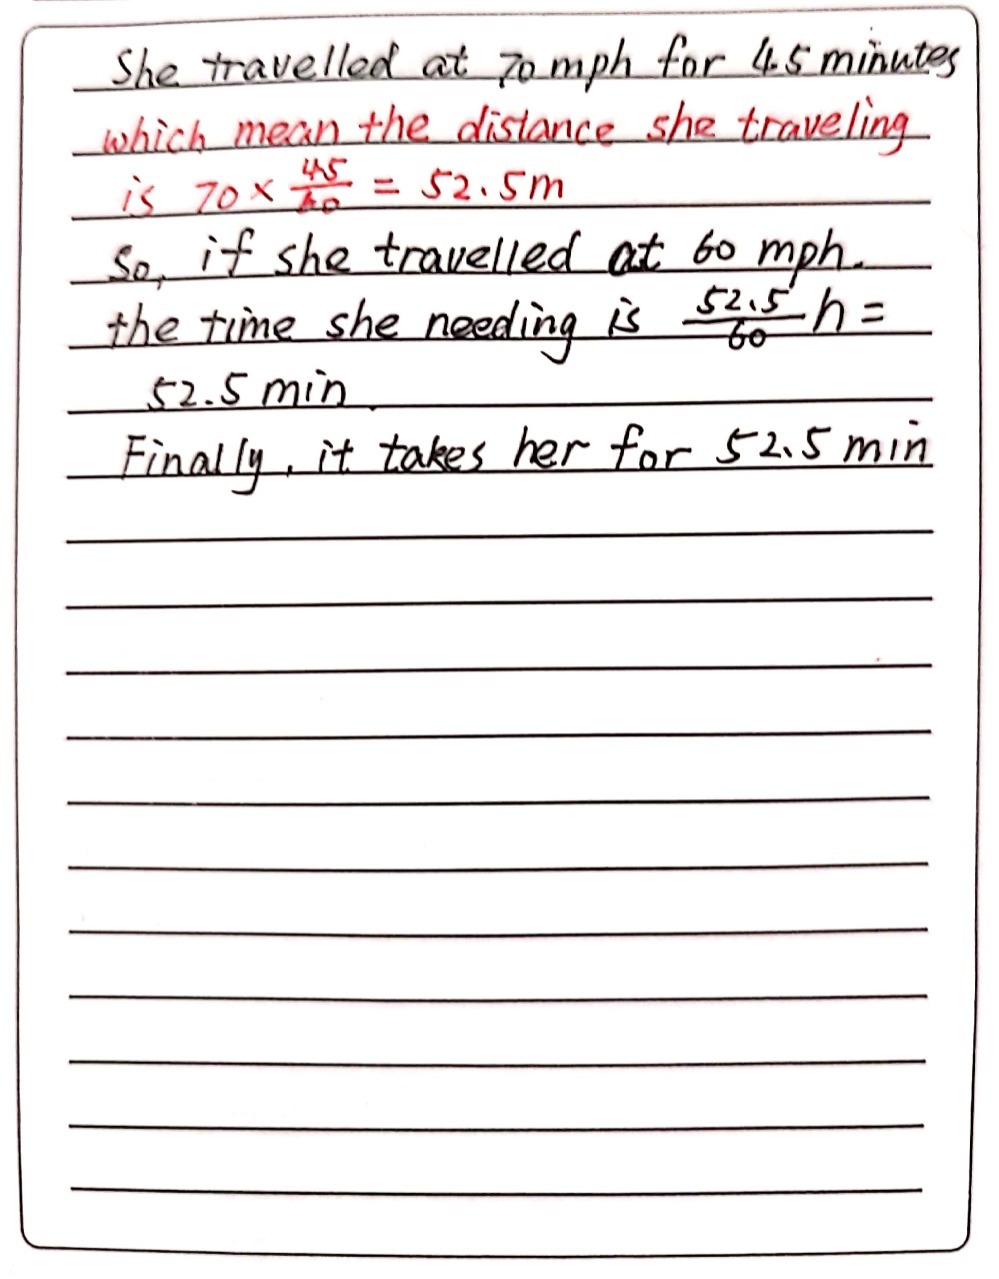 She travelled at 70 mph for 45 minutes
which mean the distance she traveling
is 70 × 45/60 = 52.5m
So, if she travelled at 60 mph.
the time she needing is 52.5/60 h =
52.5 min
Finally, it takes her for 52.5 min